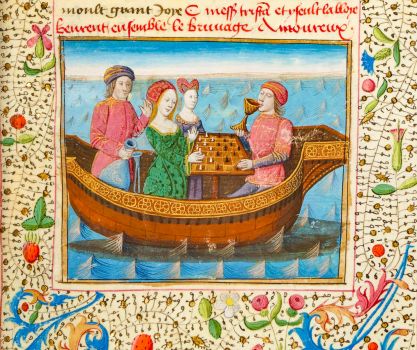 moult grant Joye C mess tristā et yseult la bloye
beurent ensemble le bruuage Amoureux